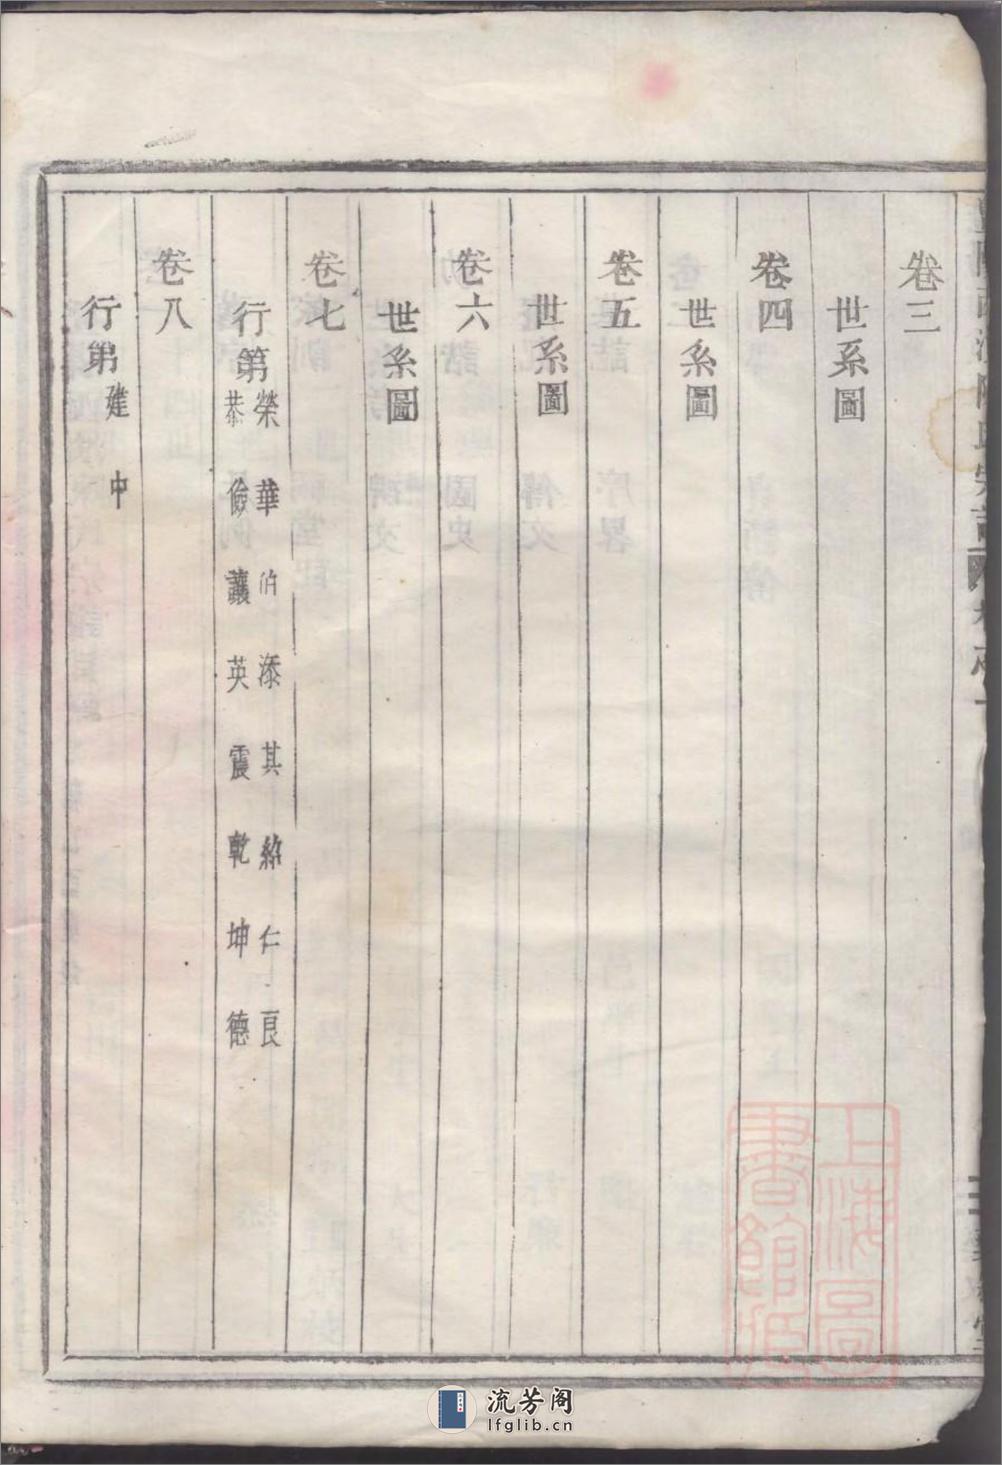 卷三
世系圖
卷四
世系圖
卷五
世系圖
卷六
世系圖
卷七
行第
榮華伯添其絲仁良
恭儉讓英震乾坤德
卷八
行第建中
上海圖
書館藏
流芳阁
lfglib.cn